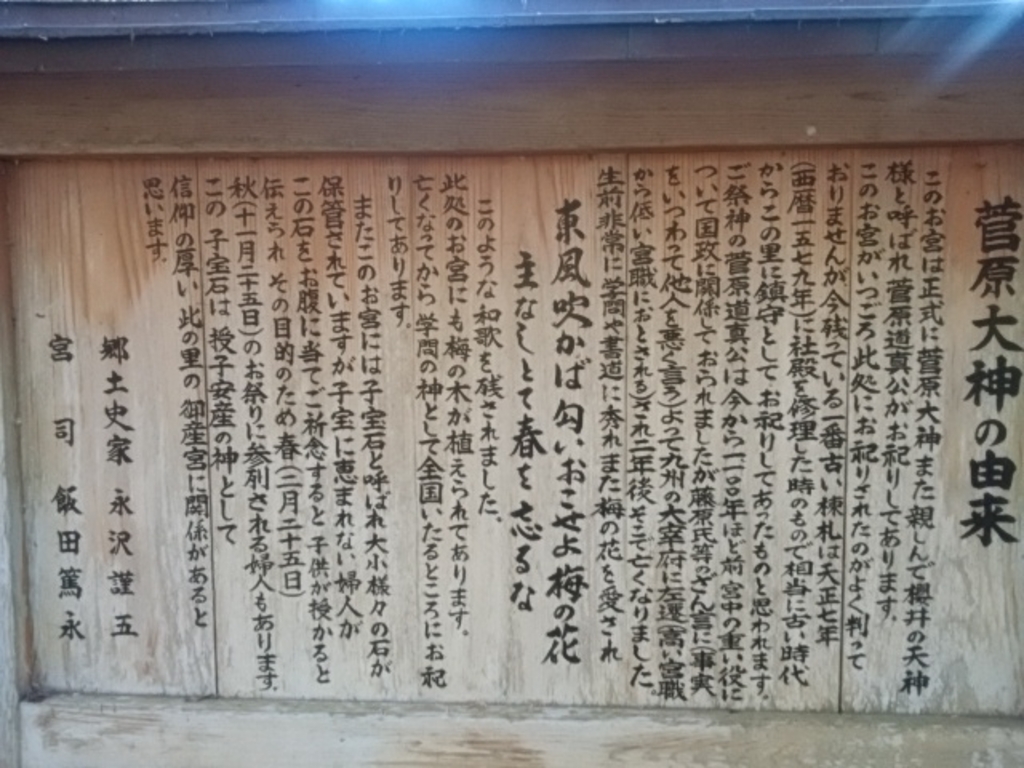 菅原大神の由来
このお宮は正式に菅原大神また親しんで櫻井の天神
様と呼ばれ菅原道真公がお祀りしてあります。
このお宮がいつごろ此処にお祀りされたのがよく判って
おりませんが今残っている一番古い棟札は天正七年
(西暦一五七九年)に社殿を修理した時のもので相当に古い時代
からこの里に鎮守としてお祀りしてあったものと思われます。
ご祭神の菅原道真公は今から一一〇〇年ほど前宮中の重い役に
ついて国政に関係しておられましたが藤原氏等のざん言に(事実
を、いつわって他人を悪く言う)よって九州の大宰府に左遷(高い宮職
から低い宮職におとされる)され二年後そこで亡くなりました。
生前非常に学問や書道に秀れまた梅の花を愛され
東風吹かば匂いおこせよ梅の花
主なしとて春を忘るな
このような和歌を残されました。
此処のお宮にも梅の木が植えられてあります。
亡くなってから学問の神として全国いたるところにお祀
りしてあります。
またこのお宮には子宝石と呼ばれ大小様々の石が
保管されていますが子宝に恵まれない婦人が
この石をお腹に当てご祈念すると子供が授かると
伝えられその目的のため春(二月二十五日)
秋(十一月二十五日)のお祭りに参列される婦人もあります。
この子宝石は授子安産の神として
信仰の厚い此の里の御産宮に関係があると
思います。
郷土史家 永沢謹五
宮司 飯田篤永